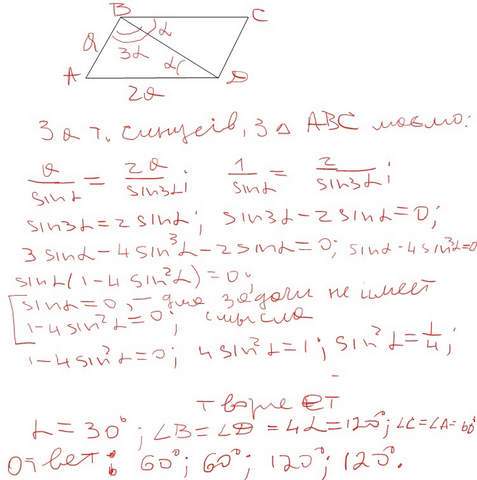 B C
a 3α α
α
A D
2a
З а т. синусів, з Δ ABC маємо:
a/sinα = 2a/sin3α; 1/sinα = 2/sin3α;
sin3α = 2 sinα; sin3α - 2 sinα = 0;
3 sinα - 4 sin³α - 2 sinα = 0; sinα - 4 sin³α = 0
sinα (1 - 4 sin²α) = 0;
[sinα = 0, - для задачи не имеет
1 - 4 sin²α = 0; смысла
1 - 4 sin²α = 0; 4 sin²α = 1; sin²α = 1/4;
α = 30°; ∠B = ∠D = 4α = 120°; ∠C = ∠A = 60°
Ответ: 60°; 60°; 120°; 120°.